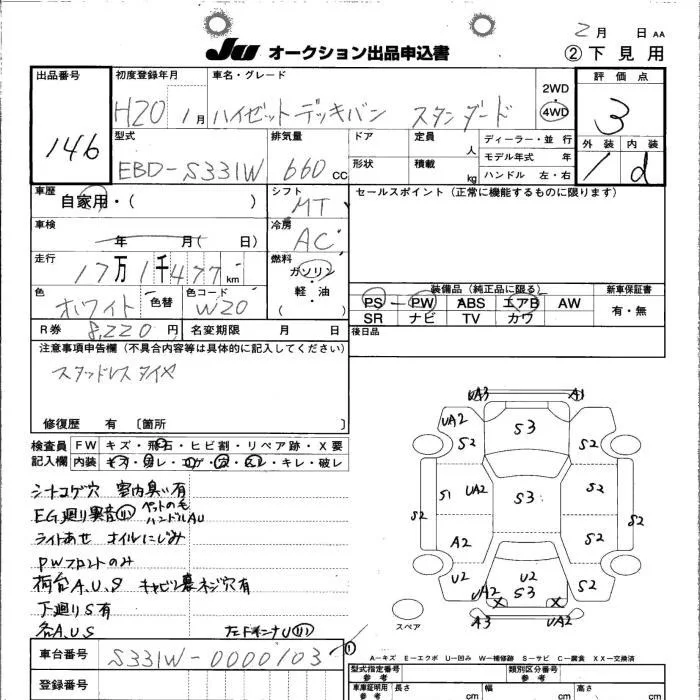 2月 日 AA
JU オークション出品申込書
② 下見用
出品番号
146
初度登録年月
H20 1月
車名・グレード
ハイゼットデッキバン スタンダード
2WD
4WD
評価点
3
型式
EBD-S331W
排気量
660 CC
ドア
定員
人
ディーラー・並行
モデル年式 年
形状
積載
kg
ハンドル 左・右
外装 内装
d
車歴
自家用・( )
シフト
MT
セールスポイント(正常に機能するものに限ります)
車検
年 月( 日)
冷房
AC
走行
17万1千477km
燃料
ガソリン
軽・油
( )
色
ホワイト
色替
色コード
W20
装備品(純正品に限る)
PS PW ABS エアB AW
SR ナビ TV カワ
新車保証書
有・無
R券 8,220円
名変期限 月 日
後日品
注意事項申告欄(不具合内容等は具体的に記入してください)
スタッドレスタイヤ
修復歴 有 〔箇所 〕
検査員
記入欄
FW キズ・飛石・ヒビ割・リペア跡・X要
内装 キズ・汚レ・コゲ・穴・スレ・キレ・破レ
シートコゲ穴 室内臭い有
EG廻り異音 ペットの毛
ハンドルAU
ライトあせ オイルにじみ
PWフロントのみ
荷台A.U.S キャビン裏ネジ穴有
下廻りS有
各A.U.S
車台番号
S331W-0000103
登録番号
UA3 A1
UA2 S2 S3 S2
S1 UA2 S3 S2
S2 S2
A2 S2
U2 UA2 U2 S3 S2
X X
A3 UA2
スペア
A-キズ E-エクボ U-凹み W-補修跡 S-サビ C-腐食 XX-交換済
型式指定番号
参考
類別区分番号
参考
車庫証明用
参考
長さ
幅
高さ